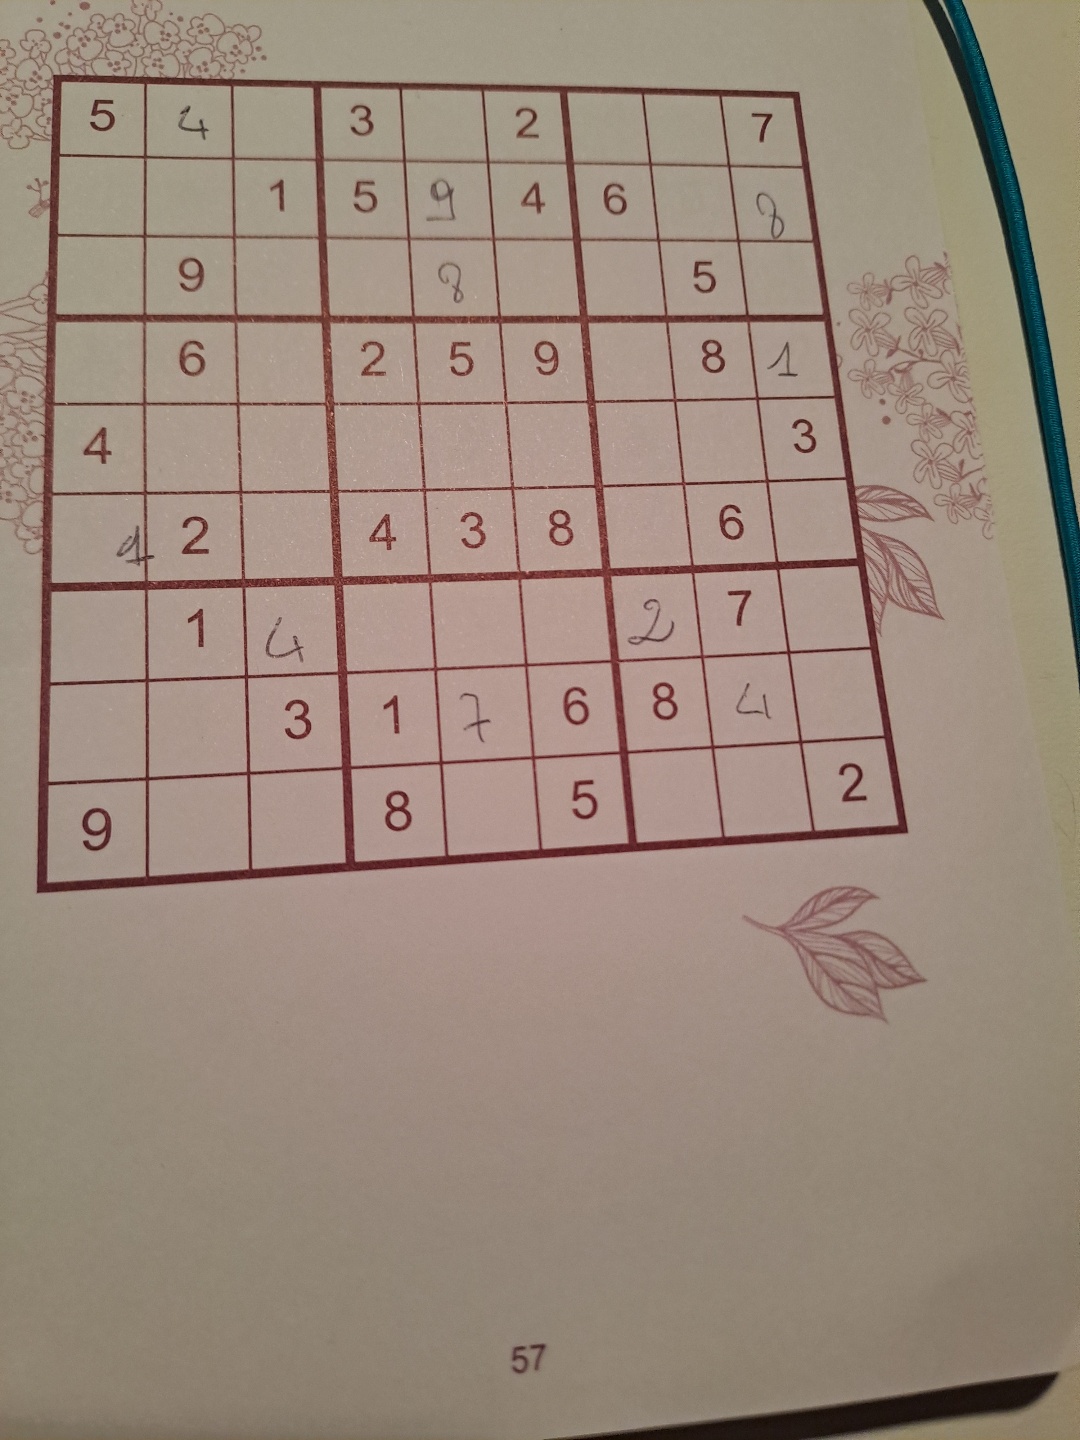 5 4 3 2 7
1 5 9 4 6 8
9 8 5
6 2 5 9 8 1
4 3
1 2 4 3 8 6
1 4 2 7
3 1 7 6 8 4
9 8 5 2
57